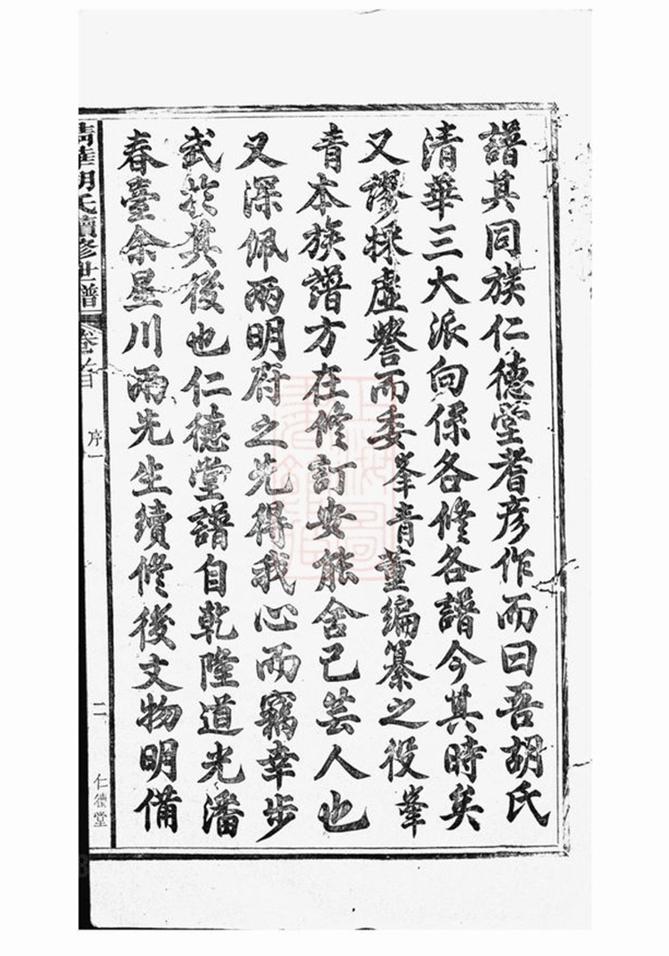 譜其同族仁德堂耆彦作而曰吾胡氏
清華三大派向係各修各譜今其時矣
又謬採虛譽而委峯青董編纂之役峯
青本族譜方在修訂安能舍己芸人也
又深佩兩明府之先得我心而竊幸步
武於其後也仁德堂譜自乾隆道光潘
春臺余星川兩先生續修後文物明備
清華胡氏續修世譜
卷之首
序一
二
仁德堂